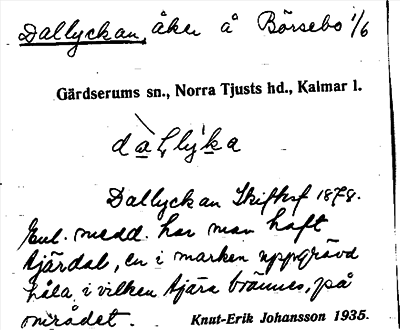 Dallyckan, åker å Börsebo 1/6
Gärdserums sn., Norra Tjusts hd., Kalmar l.
dallyka
Dallyckan Skifteskf 1878.
Enl. medd. har man haft
tjärdal, en i marken uppgrävd
håla i vilken tjära brännes, på
området.
Knut-Erik Johansson 1935.